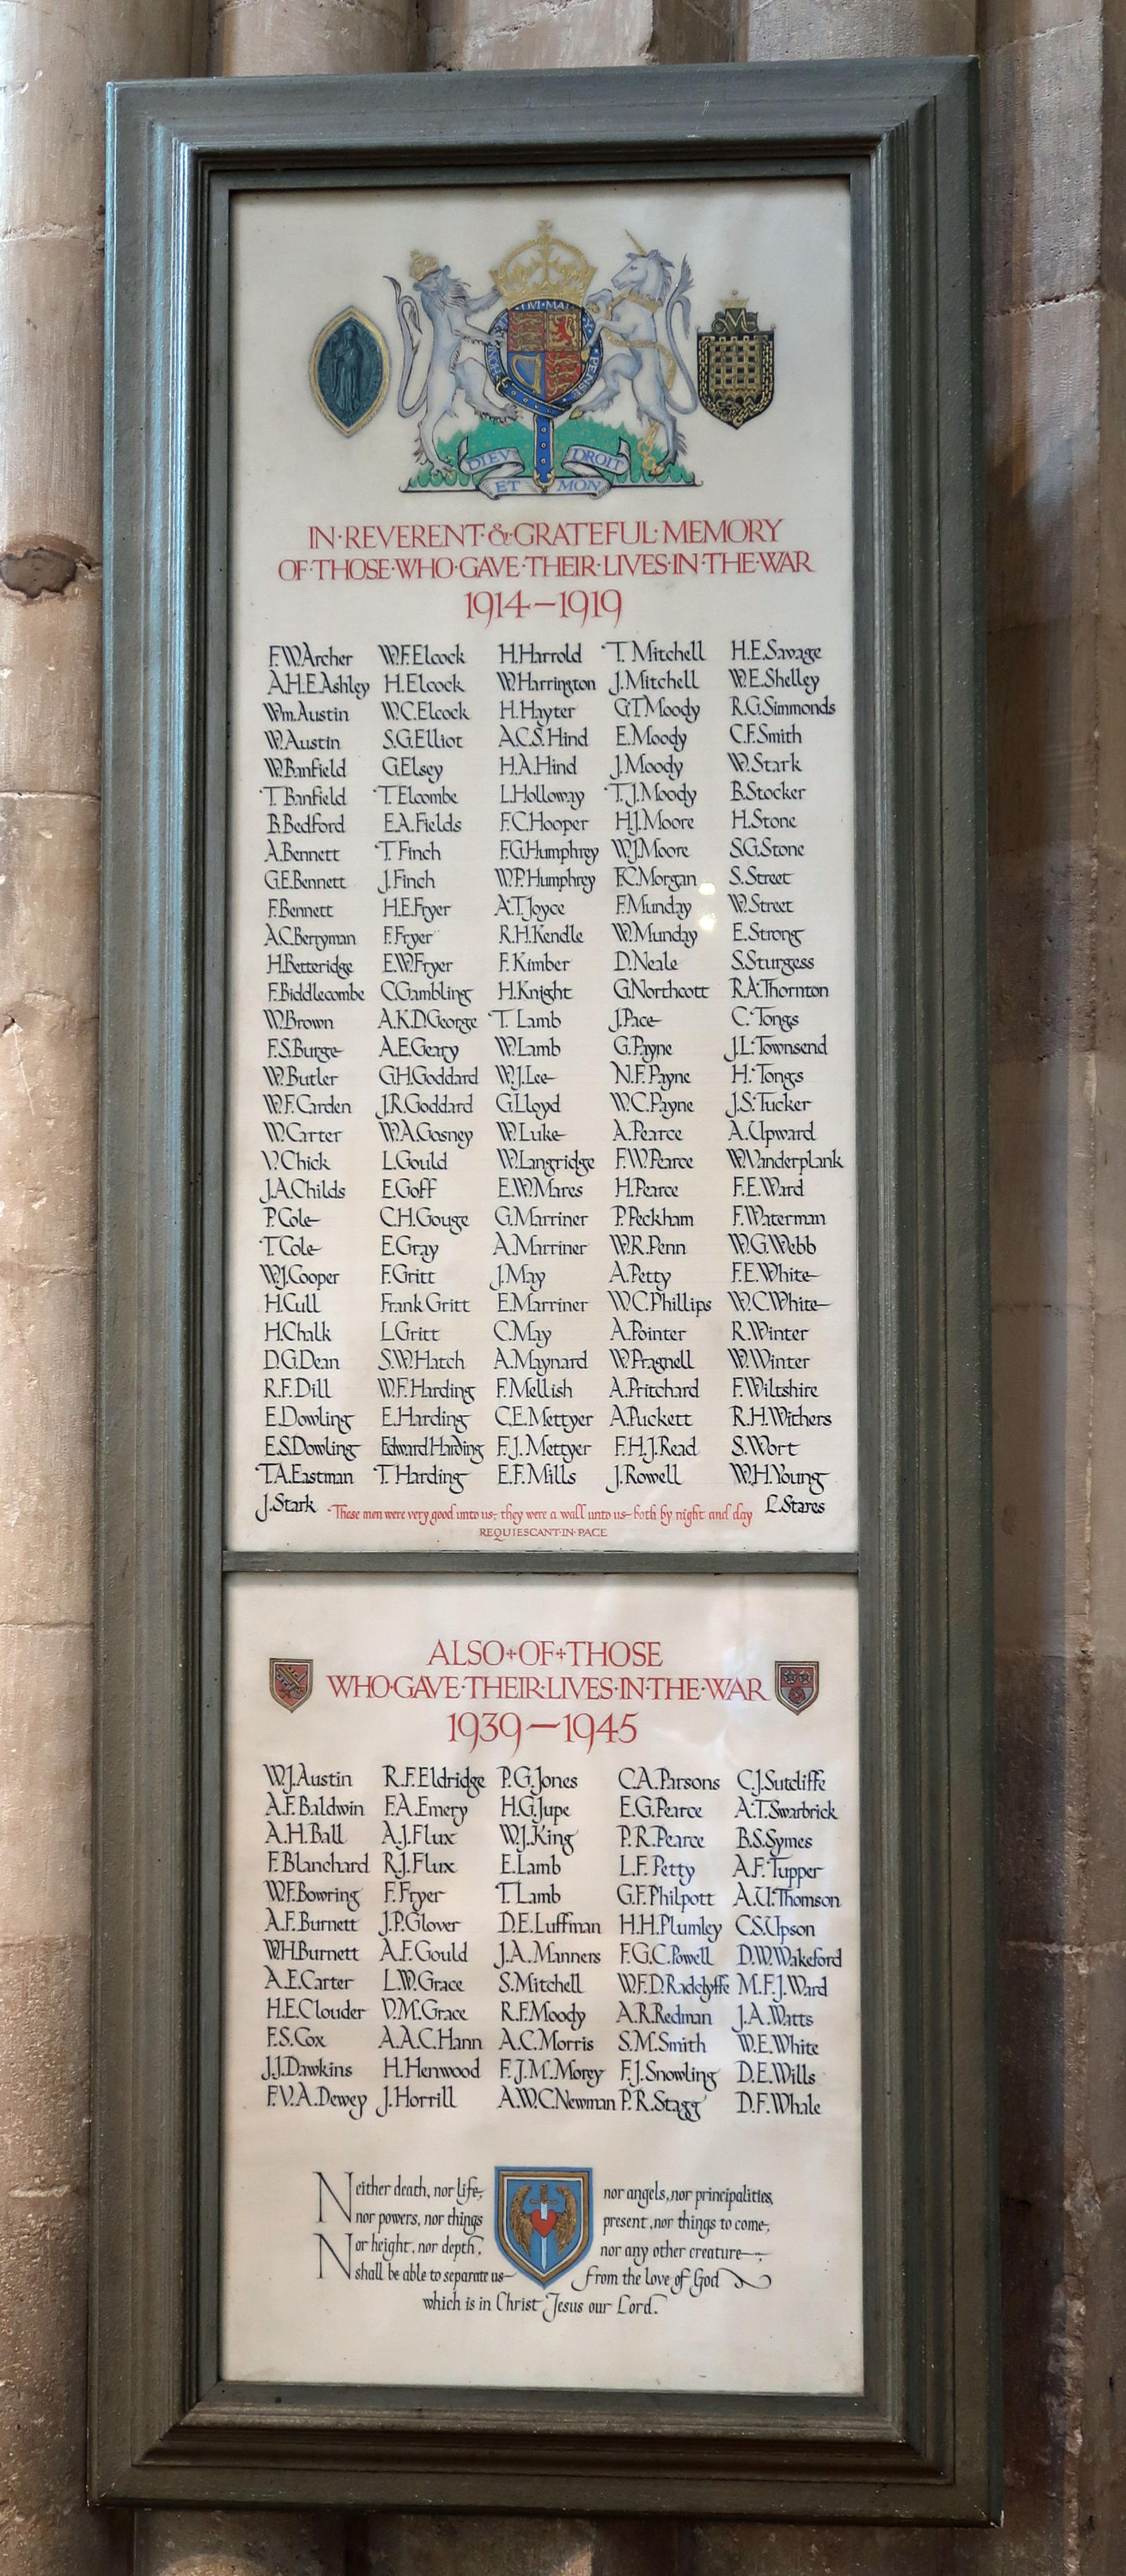 HONI
QUI MAL
PENSE
DIEU DROIT
ET MON
M
IN·REVERENT·&·GRATEFUL·MEMORY
OF·THOSE·WHO·GAVE·THEIR·LIVES·IN·THE·WAR
1914–1919
F.W.Archer W.F.Elcock H.Harrold T. Mitchell H.E.Savage
A.H.E.Ashley H.Elcock W.Harrington J.Mitchell W.E.Shelley
Wm.Austin W.C.Elcock H.Hayter G.T.Moody R.G.Simmonds
W.Austin S.G.Elliot A.C.S.Hind E.Moody C.F.Smith
W.Banfield G.Elsey H.A.Hind J.Moody W.Stark
T. Banfield T. Elcombe L.Holloway T.J.Moody B.Stocker
B.Bedford E.A.Fields F.C.Hooper H.J.Moore H.Stone
A.Bennett T. Finch F.G.Humphrey W.J.Moore S.G.Stone
G.E.Bennett J.Finch W.P.Humphrey F.C.Morgan S.Street
F.Bennett H.E.Fryer A.T.Joyce F.Munday W.Street
A.C.Berryman F.Fryer R.H.Kendle W.Munday E.Strong
H.Betteridge E.W.Fryer F.Kimber D.Neale S.Sturgess
F.Biddlecombe C.Gambling H.Knight G.Northcott R.A.Thornton
W.Brown A.K.D.George T. Lamb J.Pace C.Tongs
F.S.Burge A.E.Geary W.Lamb G.Payne J.L.Townsend
W.Butler G.H.Goddard W.J.Lee N.F.Payne H.Tongs
W.F.Carden J.R.Goddard G.Lloyd W.C.Payne J.S.Tucker
W.Carter W.A.Gosney W.Luke A.Pearce A.Upward
V.Chick L.Gould W.Langridge F.W.Pearce W.Vanderplank
J.A.Childs E.Goff E.W.Mares H.Pearce F.E.Ward
P.Cole C.H.Gouge G.Marriner P.Peckham F.Waterman
T.Cole E.Gray A.Marriner W.R.Penn W.G.Webb
W.J.Cooper F.Gritt J.May A.Petty F.E.White
H.Cull Frank Gritt E.Marriner W.C.Phillips W.C.White
H.Chalk L.Gritt C.May A.Pointer R.Winter
D.G.Dean S.W.Hatch A.Maynard W.Pragnell W.Winter
R.F.Dill W.F.Harding F.Mellish A.Pritchard F.Wiltshire
E.Dowling E.Harding C.E.Mettyer A.Puckett R.H.Withers
E.S.Dowling Edward Harding F.J.Mettyer F.H.J.Read S.Wort
T.A.Eastman T. Harding E.F.Mills J.Rowell W.H.Young
J.Stark These men were very good unto us; they were a wall unto us both by night and day L.Stares
REQUIESCANT·IN·PACE
ALSO+OF+THOSE
WHO·GAVE·THEIR·LIVES·IN·THE·WAR
1939–1945
W.J.Austin R.F.Eldridge P.G.Jones C.A.Parsons C.J.Sutcliffe
A.F.Baldwin F.A.Emery H.G.Jupe E.G.Pearce A.T.Swarbrick
A.H.Ball A.J.Flux W.J.King P.R.Pearce B.S.Symes
F.Blanchard R.J.Flux E.Lamb L.F.Petty A.F.Tupper
W.F.Bowring F.Fryer T.Lamb G.F.Philpott A.U.Thomson
A.F.Burnett J.P.Glover D.E.Luffman H.H.Plumley C.S.Upson
W.H.Burnett A.F.Gould J.A.Manners F.G.C.Powell D.W.Wakeford
A.E.Carter L.W.Grace S.Mitchell W.F.D.Radclyffe M.F.J.Ward
H.E.Clouder V.M.Grace R.F.Moody A.R.Redman J.A.Watts
F.S.Cox A.A.C.Hann A.C.Morris S.M.Smith W.E.White
J.J.Dawkins H.Henwood F.J.M.Morey F.J.Snowling D.E.Wills
F.V.A.Dewey J.Horrill A.W.C.Newman P.R.Stagg D.F.Whale
Neither death, nor life, nor angels, nor principalities,
nor powers, nor things present, nor things to come,
Nor height, nor depth, nor any other creature,
shall be able to separate us from the love of God
which is in Christ Jesus our Lord.